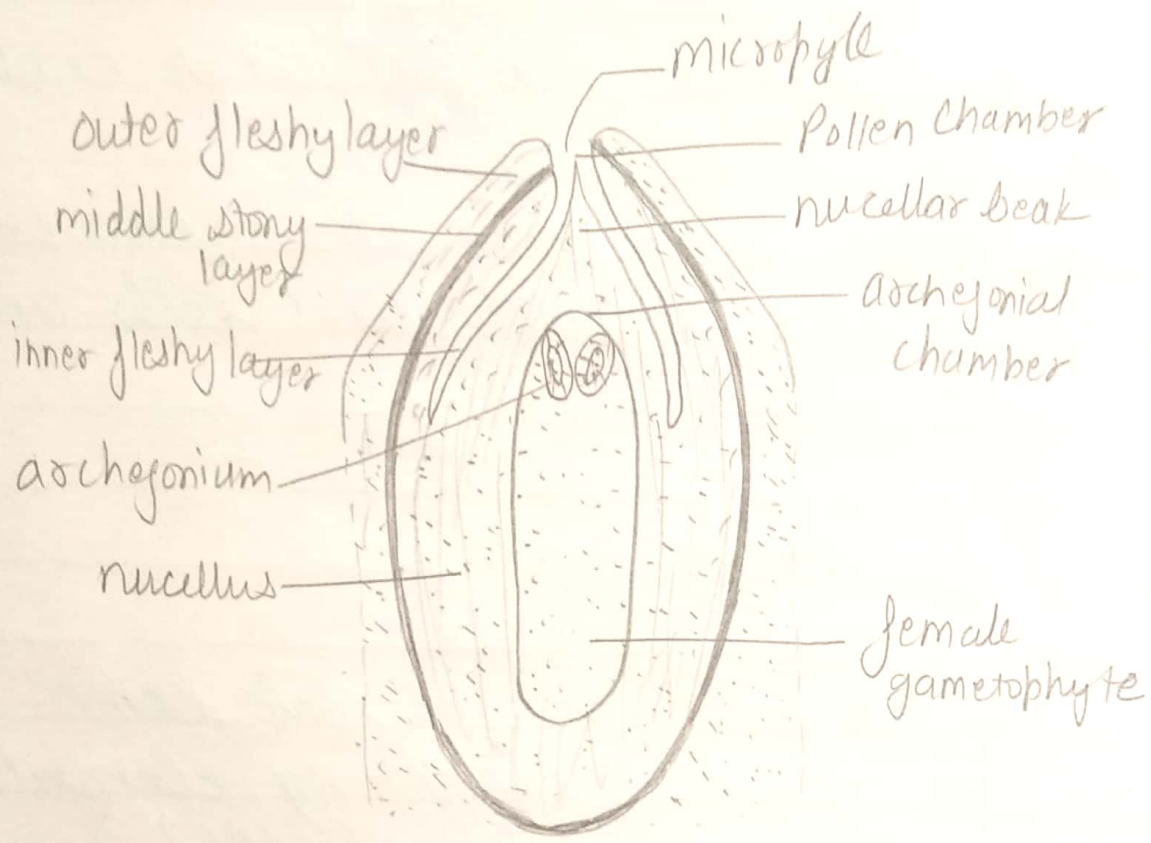 micropyle
outer fleshy layer
Pollen Chamber
middle stony
layer
nucellar beak
archegonial
chamber
inner fleshy layer
archegonium
nucellus
female
gametophyte